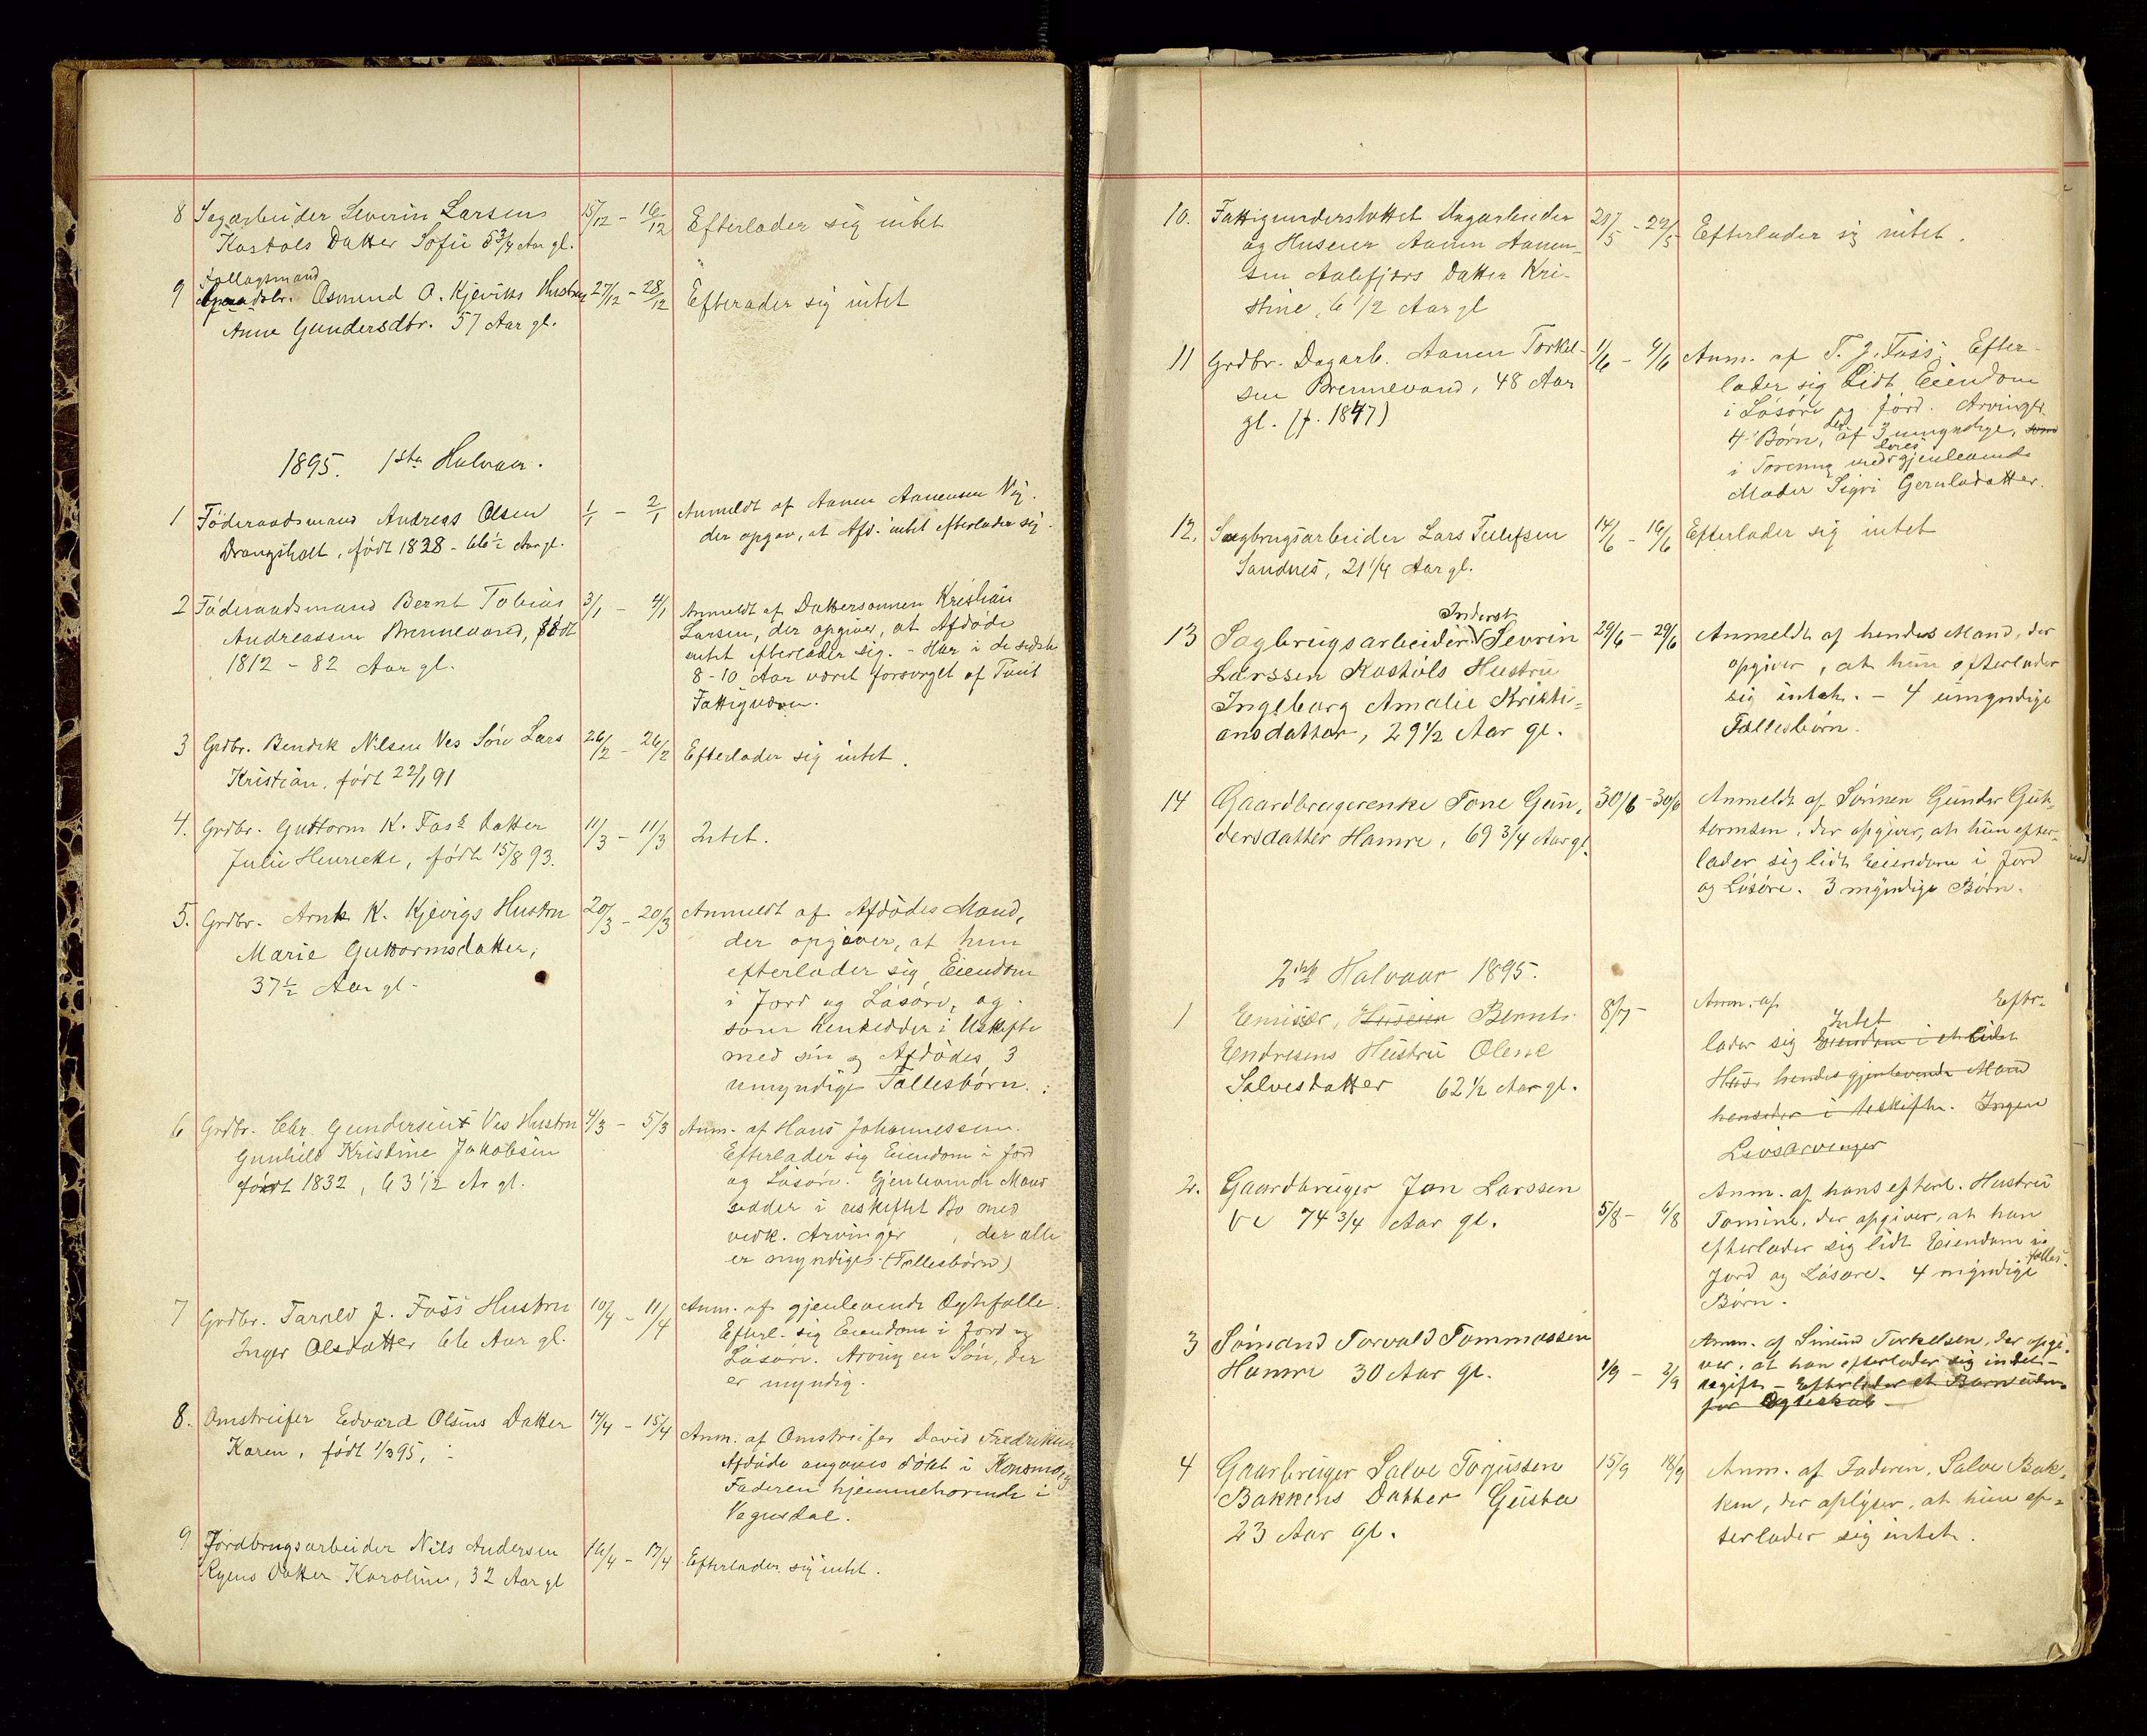 8 Sagarbeider Severin Larsens 15/12 – 16/12 Efterlader sig intet
Kostøls Datter Sofie 5 3/4 Aar gl.
Føllagsmand
9 Osmund O. Kjeviks Hustru 27/12 – 28/12 Efterader sig intet
Anne Gundersdtr. 57 Aar gl.
1895. 1ste Halvaar.
1 Föderaadsmand Andreas Olsen 1/1 – 2/1 Anmeldt af Aanen Aanensen Vig.
Drangsholt, født 1828 – 66 1/2 Aar gl. der opgav, at Afd. intet efterlader sig.
2 Föderaadsmand Bernt Tobias 3/1 – 4/1 Anmeldt af Dattersønnen Kristian
Andreassen Brennevand, født Larsen, der opgiver, at Afdöde
1812 – 82 Aar gl. intet efterlader sig. – Har i de sidste
8-10 Aar været forsørget af Tveit
Fattigvæsen.
3 Grdbr. Bendik Nilsen Ves Sön Lars 26/2 – 26/2 Efterlader sig intet.
Kristian, født 22/1 91
4. Grdbr. Guttorm K. Foss Datter 11/3 – 11/3 Intet.
Julie Henrieke, født 15/8 93.
5. Grdbr. Arnt K. Kjevigs Hustru 20/3 – 20/3 Anmeldt af Afdödes Mand,
Marie Guttormsdatter, der opgiver, at hun
37 1/2 Aar gl. efterlader sig Eiendom
i Jord og Lösöre, og
som hensidder i Uskifte
med sin og Afdödes 3
umyndige Fællesbörn.
6 Grdbr. Chr. Gundersen Ves Hustru 4/3 – 5/3 Anm. af Hans Johannessen.
Gunhild Kristine Jakobsen Efterlader sig Eiendom i Jord
født 1832, 63 1/2 Ar gl. og Lösöre. Gjenlevende Mand
sidder i uskiftet Bo med
vedk. Arvinger , der alle
er myndiges (Fællesbörn)
7 Grdbr. Tarald J. Foss Hustru 10/4 – 11/4 Anm. af gjenlevende Ægtefælle.
Inger Olsdatter 66 Aar gl. Efterl. sig Eiendom i Jord og
Lösöre. Arving en Sön, der
er myndig.
8. Omstreifer Edvard Olsens Datter 14/4 – 15/4 Anm. af Omstreifer David Fredriksen
Karen, født 1/3 95, Afdöde angaves döbt i Konsmo, og
Faderen hjemmehorende i
Vegusdal.
9 Jordbrugsarbeider Nils Andersen 16/4 – 17/4 Efterlader sig intet.
Ryens Datter Karoline, 32 Aar gl
10. Fattigunderstøttet Dagarbeider 21/5 – 22/5 Efterlader sig intet.
og Huseier Aanen Aanen-
sen Aalefjærs Datter Kri-
stine, 6 1/2 Aar gl
11 Grdbr. Dagarb. Aanen Torkel- 1/6 – 4/6 Anm. af T. J. Foss. Efter-
sen Brennevand, 48 Aar lader sig lidt Eiendom
gl. (f. 1847) i Lösöre og Jord. Arvinger
4 Börn, deraf 3 umyndige, som
i Forening med deres gjenlevende
Moder Sigri Gerulodatter.
12. Sagbrugsarbeider Lars Tellefsen 14/6 – 16/6 Efterlader sig intet
Sandnes, 21 1/4 Aar gl.
Inderst
13 Sagbrugsarbeider Sevrin 29/6 – 29/6 Anmeldt af hendes Mand, der
Larssen Kostöls Hustru opgiver, at hun efterlader
Ingeborg Amalie Kristi- sig intet. – 4 umyndige
ansdatter, 29 1/2 Aar gl. Fællesbörn.
14 Gaardbrugerenke Tone Gun- 30/6 – 30/6 Anmeldt af Sönnen Gunder Gut-
dersdatter Hamre, 69 3/4 Aar gl. tormsen, der opgiver, at hun efter-
lader sig lidt Eiendom i Jord
og Lösöre. 3 myndige Börn.
2det Halvaar 1895.
1 Emissær, Huseier Bernt 8/7 – Anm. af Efter-
Endresens Hustru Olene lader sig Intet Eiendom i et lidet
Salvesdatter 62 1/2 Aar gl. Hus hendes gjenlevende Mand
hensidder i Uskifte. Ingen
Livsarvinger
2. Gaardbruger Jon Larssen 5/8 – 6/8 Anm. af hans efterl. Hustru
Ve 74 3/4 Aar gl. Tomine, der opgiver, at han
efterlader sig lidt Eiendom i
Jord og Lösøre. 4 myndige Fælles-
Börn.
3 Sömand Torvald Tommassen 1/9 – 2/9 Anm. af Simund Torkelsen, der opgi-
Hamre 30 Aar gl. ver, at han efterlader sig intet –
ugift – Efterlader et Barn uden-
for Ægteskab –
4 Gaarbruger Salve Torjussen 15/9 18/9 Anm. af Faderen, Salve Bak-
Bakkens Datter Gusta ken, der oplyser, at hun ef-
23 Aar gl. terlader sig intet.